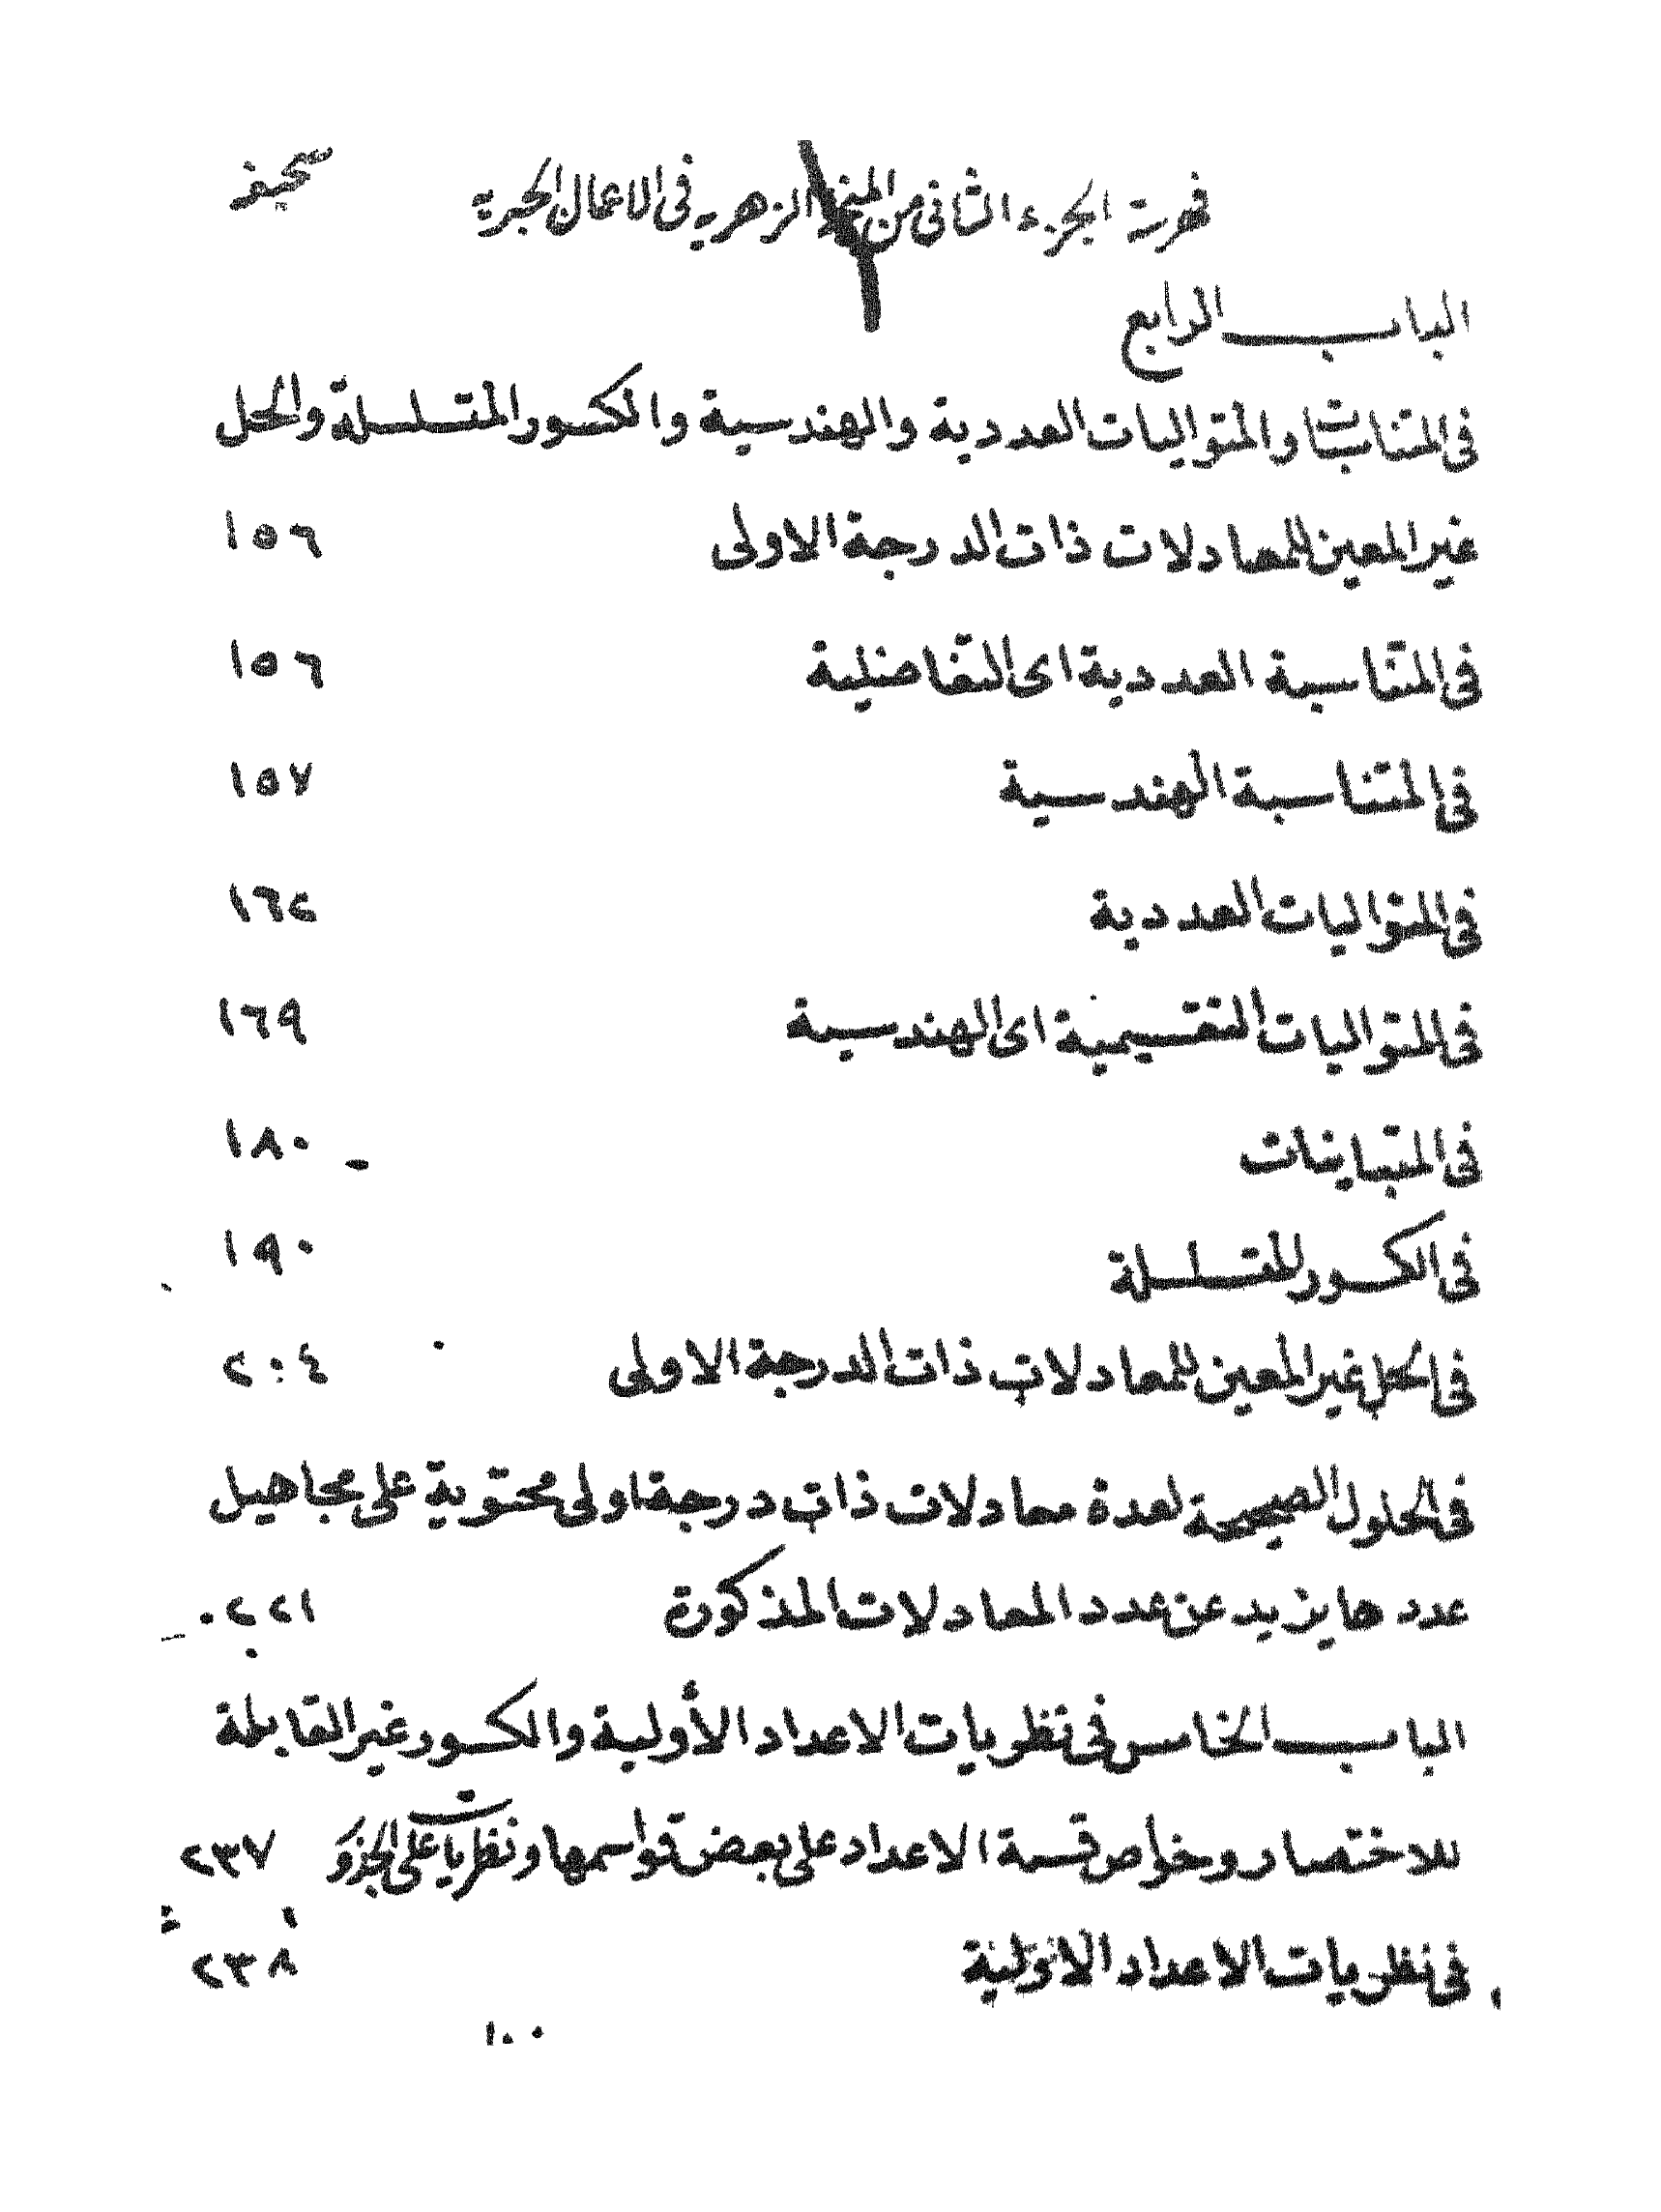 فهرست الجزء الثانى من المنحة الزهريه فى الاعمال الجبريه صحيفه
الباب الرابع
فى المتناسبات والمتواليات العددية والهندسية والكسور المتسلسلة والحل
غير المعين للمعادلات ذات الدرجة الاولى ١٥٦
فى المتناسبة العددية اى التفاضلية ١٥٦
فى المتناسبة الهندسية ١٥٧
فى المتواليات العددية ١٦٢
فى المتواليات التقسيمية اى الهندسية ١٦٩
فى المتباينات ١٨٠
فى الكسور المتسلسلة ١٩٠
فى الحل غير المعين للمعادلات ذات الدرجة الاولى ٢٠٤
فى الحلول الصحيحة لعدة معادلات ذات درجة اولى محتوية على مجاهيل
عددها يزيد عن عدد المعادلات المذكورة ٢٢١
الباب الخامس فى نظريات الاعداد الأولية والكسور غير القابلة
للاختصار وخواص قسمة الاعداد على بعض قواسمها ونظريات على الجذور ٢٣٧
فى نظريات الاعداد الاولية ٢٣٨
١٠٠